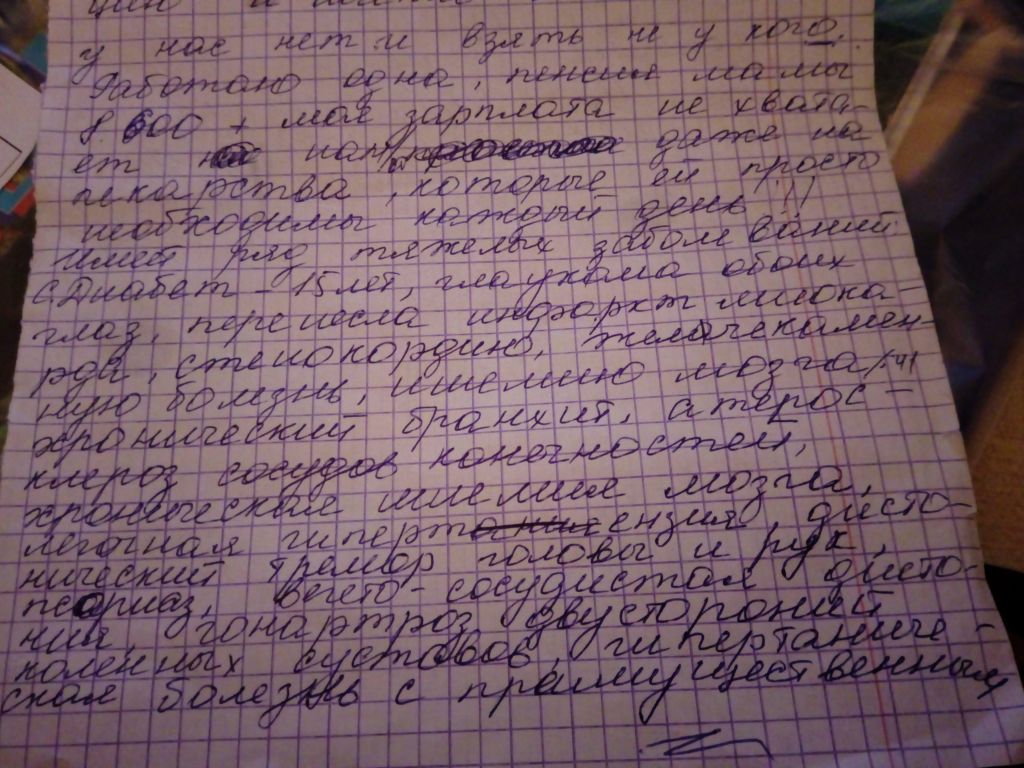 у нас нет и взять не у кого.
Работаю одна, пенсия мамы
8.600 + моя зарплата не хвата-
ет нам даже на
лекарства, которые ей просто
необходимы каждый день !!!
Имеет ряд тяжелых заболеваний
С.Диабет - 15 лет, глаукома обоих
глаз, перенесла инфаркт миока-
рда, стенокордию, желочекамен-
ную болезнь, ишемию мозга,
хронический бранхит, атерос-
клероз сосудов конечностей,
хроническая ишемия мозга,
легочная гипертензия, дисто-
нический тремор головы и рук,
псориаз, вегето-сосудистая дисто-
ния, гонартроз двусторонний
коленных суставов, гипертаниче-
ская болезнь с преимущественным